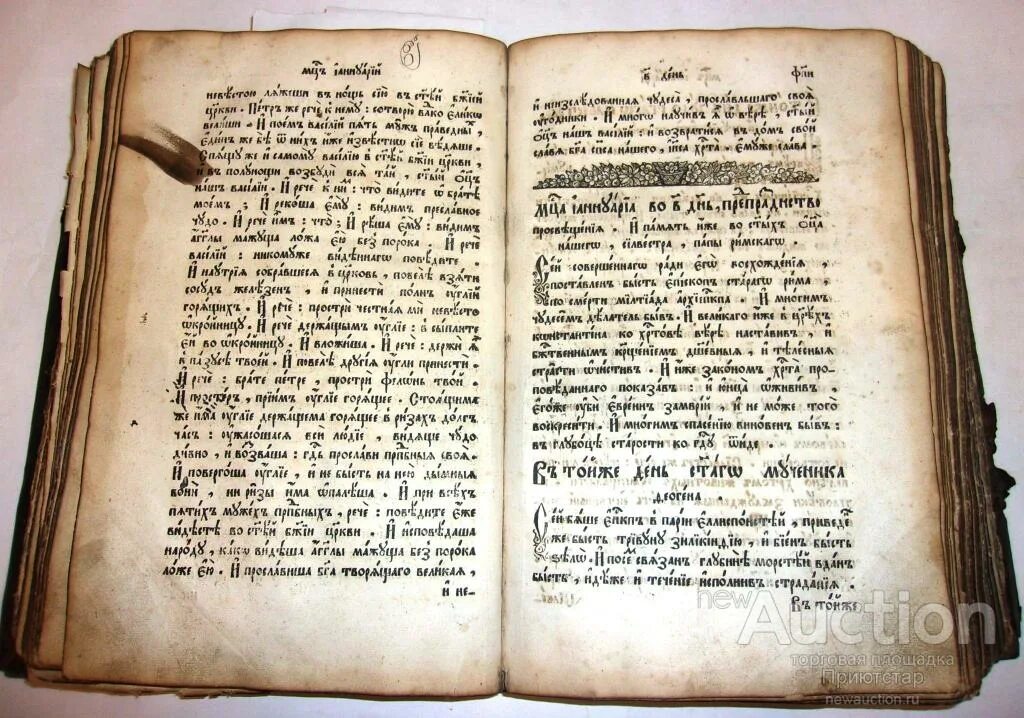 мцъ іаннуарій
невѣстою ляжеши въ нощь сїю въ стѣй бжїей
цркви . Пе́тръ же рече к нему : сотворю влко єлико
велиши . И поемъ василїй пять мужъ праведныхъ ,
єдинъ же бѣ ѿ нихъ иже извѣстно сїе вѣдяше .
Спящу же и самому василїю в стѣй бжїи цркви ,
и въ полунощи возбуди вся тай , стый оцъ
нашъ василїй : И рече к ни : что видите ѡ братѣ
моемъ ; И рекоша єму : видимъ преславное
чудо . И рече имъ : что ; И рѣша єму : видимъ
агглы мажуща ложа єю без порока . И рече
василїй : никомуже видѣннаго повѣдите .
И наутрїя собравшеся в црковь , повелѣ взяти
сосудъ желѣзенъ , и принести полнъ углїй
горящихъ . И рече : простри честная ми невѣсто
ѡкройницу . И рече держащымъ углїе : всыпите
єй во ѡкройницу . И вложиша . И рече : держи я
в пазусѣ твоей . И повелѣ другїя угли принести .
И рече : брате петре , простри фелонь твои .
И простеръ , прїимъ углїе горящее . Стоящима
же има углїе держащема горящее в ризахъ долгъ
часъ : ужасошася вси людїе , видяще чудо
дивно , и возваша : гдь прослави прпбныя своя .
И повергоша углїе , и не бысть на нею дымныя
вони , ни ризы има ѡпалѣша . И при всѣхъ
пятихъ мужехъ прпбныхъ , рече : повѣдите єже
видѣсте во стѣй бжїи цркви . И исповѣдаша
народу , како видѣша агглы мажуща без порока
ложе єю . И прославиша бга творящаго великая ,
и не-
в день
фпи
и неизслѣдованная чудеса , прославльшаго своя
угодники . И много научивъ я ѡ вѣрѣ , стый
оцъ нашъ василїй : и возвратися въ домъ свой
славя бга спса нашего , іиса хрта . Ємуже слава .
Мца іаннуарїа во в днь , препразднство
просвѣщенїя . И память иже во стыхъ оца
нашего , силвестра , папы римскаго .
Сей совершеннаго ради єго восхожденїя ,
поставленъ бысть єпископъ стараго рима ,
по смерти милтїада архїєпкпа . И многимъ
чудесемъ дѣлатель бывъ . И великаго иже в црѣхъ
константина ко хртовѣ вѣрѣ наставивъ , и
бжтвенымъ крщенїемъ дшевныя , и тѣлесныя
страсти ѡчистивъ . И иже закономъ хрта про-
повѣданнаго показавъ : и юнца ѡжививъ ,
єгоже уби євреинъ замврїй , и не може того
воскресити . И многимъ спасенїю виновенъ бывъ :
въ глубоцѣ старости ко гду ѿиде .
Въ тойже день стаго мученика
ѳеогена .
Сей бяше єпкпъ в парии єллиспонстѣй , приведе
же бысть трївуну зиликидїю , и бїенъ бысть
зѣло . И посе связанъ глубинѣ морстѣй вданъ
бысть , идѣже и теченїе исполнивъ страданїя .
Въ тойже
newAuction
торговая площадка
Приютстар
newauction.ru